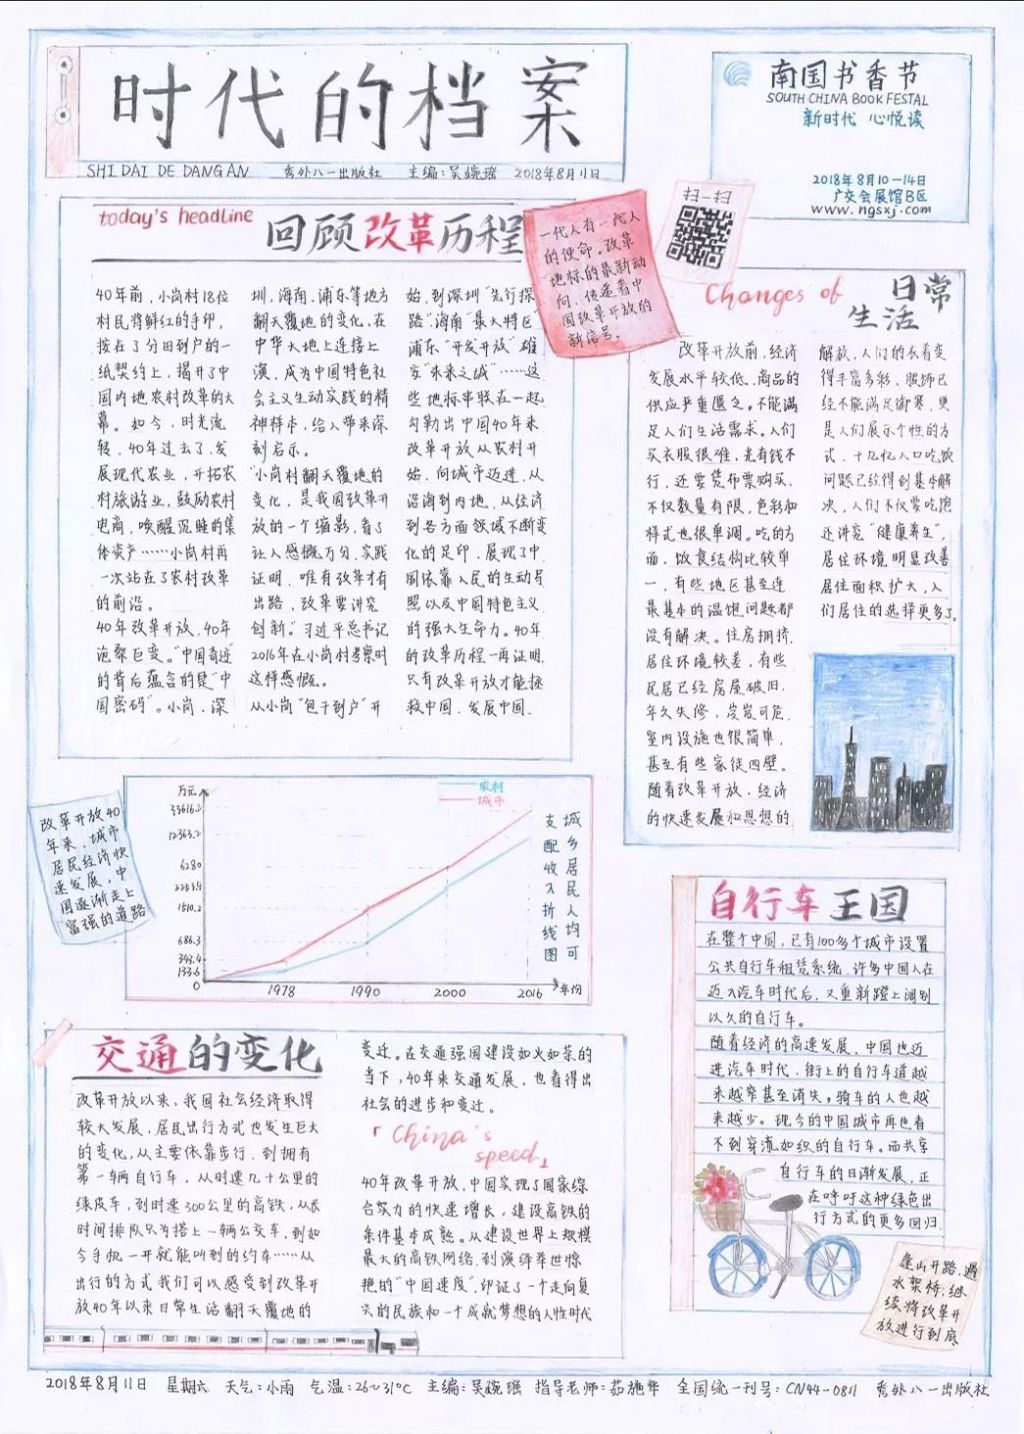 时代的档案
SHI DAI DE DANG AN 秀外八一出版社 主编:吴婉瑶 2018年8月11日
南国书香节
SOUTH CHINA BOOK FESTAL
新时代 心悦读
2018年8月10—14日
广交会展馆B区
www.ngsxj.com
today's headline
回顾改革历程
40年前,小岗村18位
村民将鲜红的手印,
按在了分田到户的一
纸契约上,揭开了中
国内地农村改革的大
幕。如今,时光流
转,40年过去了,发
展现代农业,开拓农
村旅游业,鼓励农村
电商,唤醒沉睡的集
体资产……小岗村再
一次站在了农村改革
的前沿。
40年改革开放,40年
沧桑巨变。“中国奇迹
的背后蕴含的是“中
国密码”。小岗,深
圳,海南,浦东等地方
翻天覆地的变化,在
中华大地上连接上
演,成为中国特色社
会主义生动实践的精
神样本,给人带来深
刻启示。
“小岗村翻天覆地的
变化,是我国改革开
放的一个缩影,看了
让人感慨万分,实践
证明,唯有改革才有
出路,改革要讲究
创新。”习近平总书记
2016年在小岗村考察时
这样感慨。
从小岗“包干到户”开
始,到深圳“先行探
路”,海南“最大特区”
浦东“开发开放”雄
安“未来之城”……这
些地标串联在一起,
勾勒出中国40年来
改革开放从农村开
始,向城市迈进,从
沿海到内地,从经济
到各方面领域不断变
化的足印,展现了中
国依靠人民的生动写
照以及中国特色主义
的强大生命力。40年
的改革历程一再证明,
只有改革开放才能拯
救中国,发展中国.
一代人有一代人
的使命。改革
地标的最新动
向,传递着中
国改革开放的
新信号。
扫一扫
Changes of 日常
生活
改革开放前,经济
发展水平较低,商品的
供应严重匮乏。不能满
足人们生活需求。人们
买衣服很难,光有钱不
行,还要凭布票购买,
不仅数量有限,色彩和
样式也很单调。吃的方
面,饮食结构比较单
一,有些地区甚至连
最基本的温饱问题都
没有解决。住房拥挤,
居住环境较差,有些
民居已经房屋破旧,
年久失修,岌岌可危,
室内设施也很简单,
甚至有些家徒四壁。
随着改革开放,经济
的快速发展和思想的
解放,人们的衣着变
得丰富多彩,服饰已
经不能满足御寒,更
是人们展示个性的方
式,十几亿人口吃饭
问题已经得到基本解
决,人们不仅要吃饱
还讲究“健康养生”,
居住环境明显改善
居住面积扩大,人
们居住的选择更多了。
改革开放40
年来,城市
居民经济快
速发展,中
国逐渐走上
富强的道路
万元
33616.2
12363.2
6280
1510.2
686.3
343.4
133.6
0
1978 1990 2000 2016 年份
农村
城市
城乡居民人均可
支配收入折线图
交通的变化
改革开放以来,我国社会经济取得
较大发展,居民出行方式也发生巨大
的变化,从主要依靠步行,到拥有
第一辆自行车,从时速几十公里的
绿皮车,到时速300公里的高铁,从长
时间排队只为搭上一辆公交车,到如
今手机一开就能听到的约车……从
出行的方式我们可以感受到改革开
放40年以来日常生活翻天覆地的
变迁。在交通强国建设如火如荼的
当下,40年来交通发展,也看得出
社会的进步和变迁。
「China's
speed」
40年改革开放,中国实现了国家综
合实力的快速增长,建设高铁的
条件基本成熟。从建设世界上规模
最大的高铁网络,到演绎举世惊
艳的“中国速度”,印证了一个走向复
兴的民族和一个成就梦想的人性时代
自行车王国
在整个中国,已有100多个城市设置
公共自行车租赁系统,许多中国人在
迈入汽车时代后,又重新蹬上阔别
以久的自行车。
随着经济的高速发展,中国也迈
进汽车时代,街上的自行车道越
来越窄甚至消失,骑车的人也越
来越少。现今的中国城市再也看
不到穿流如织的自行车。而共享
自行车的日渐发展,正
在呼吁这种绿色出
行方式的更多回归.
逢山开路,遇
水架桥,继
续将改革开
放进行到底
2018年8月11日 星期六 天气:小雨 气温:26~31℃ 主编:吴婉瑶 指导老师:茹施华 全国统一刊号:CN44-0811 秀外八一出版社